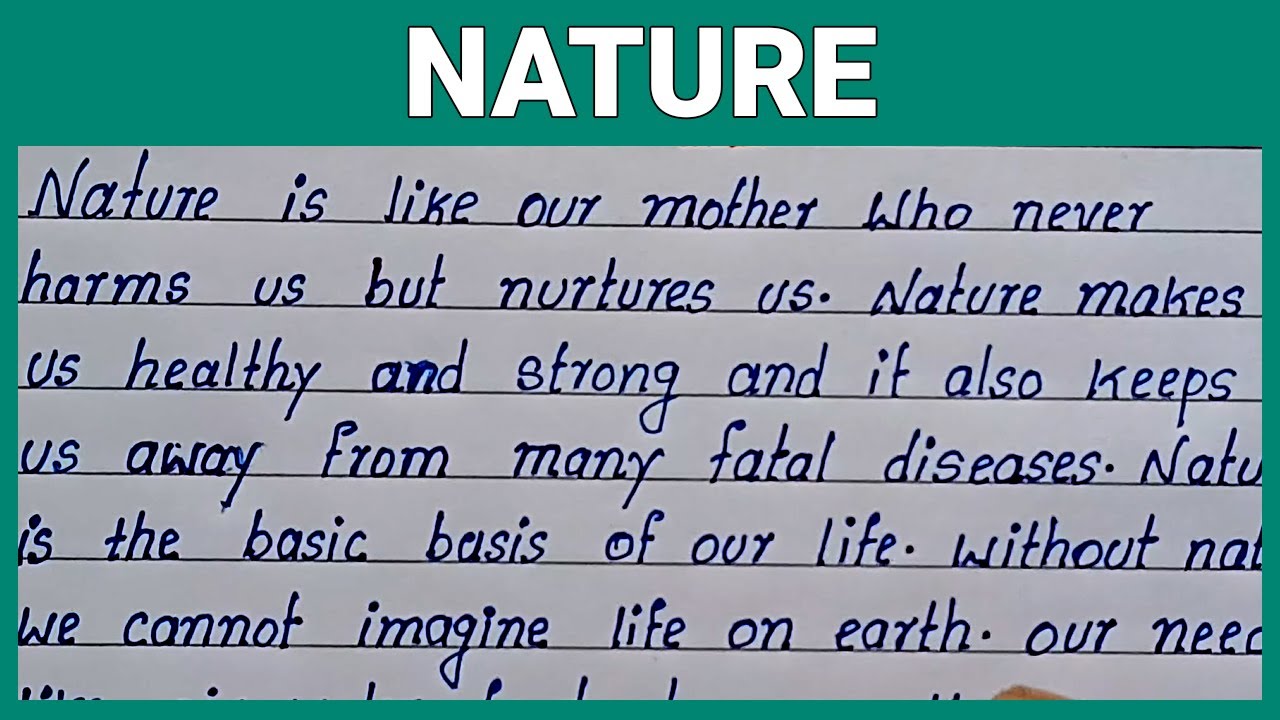 NATURE
Nature is like our mother who never
harms us but nurtures us. Nature makes
us healthy and strong and it also keeps
us away from many fatal diseases. Natu
is the basic basis of our life. without nat
we cannot imagine life on earth. our need